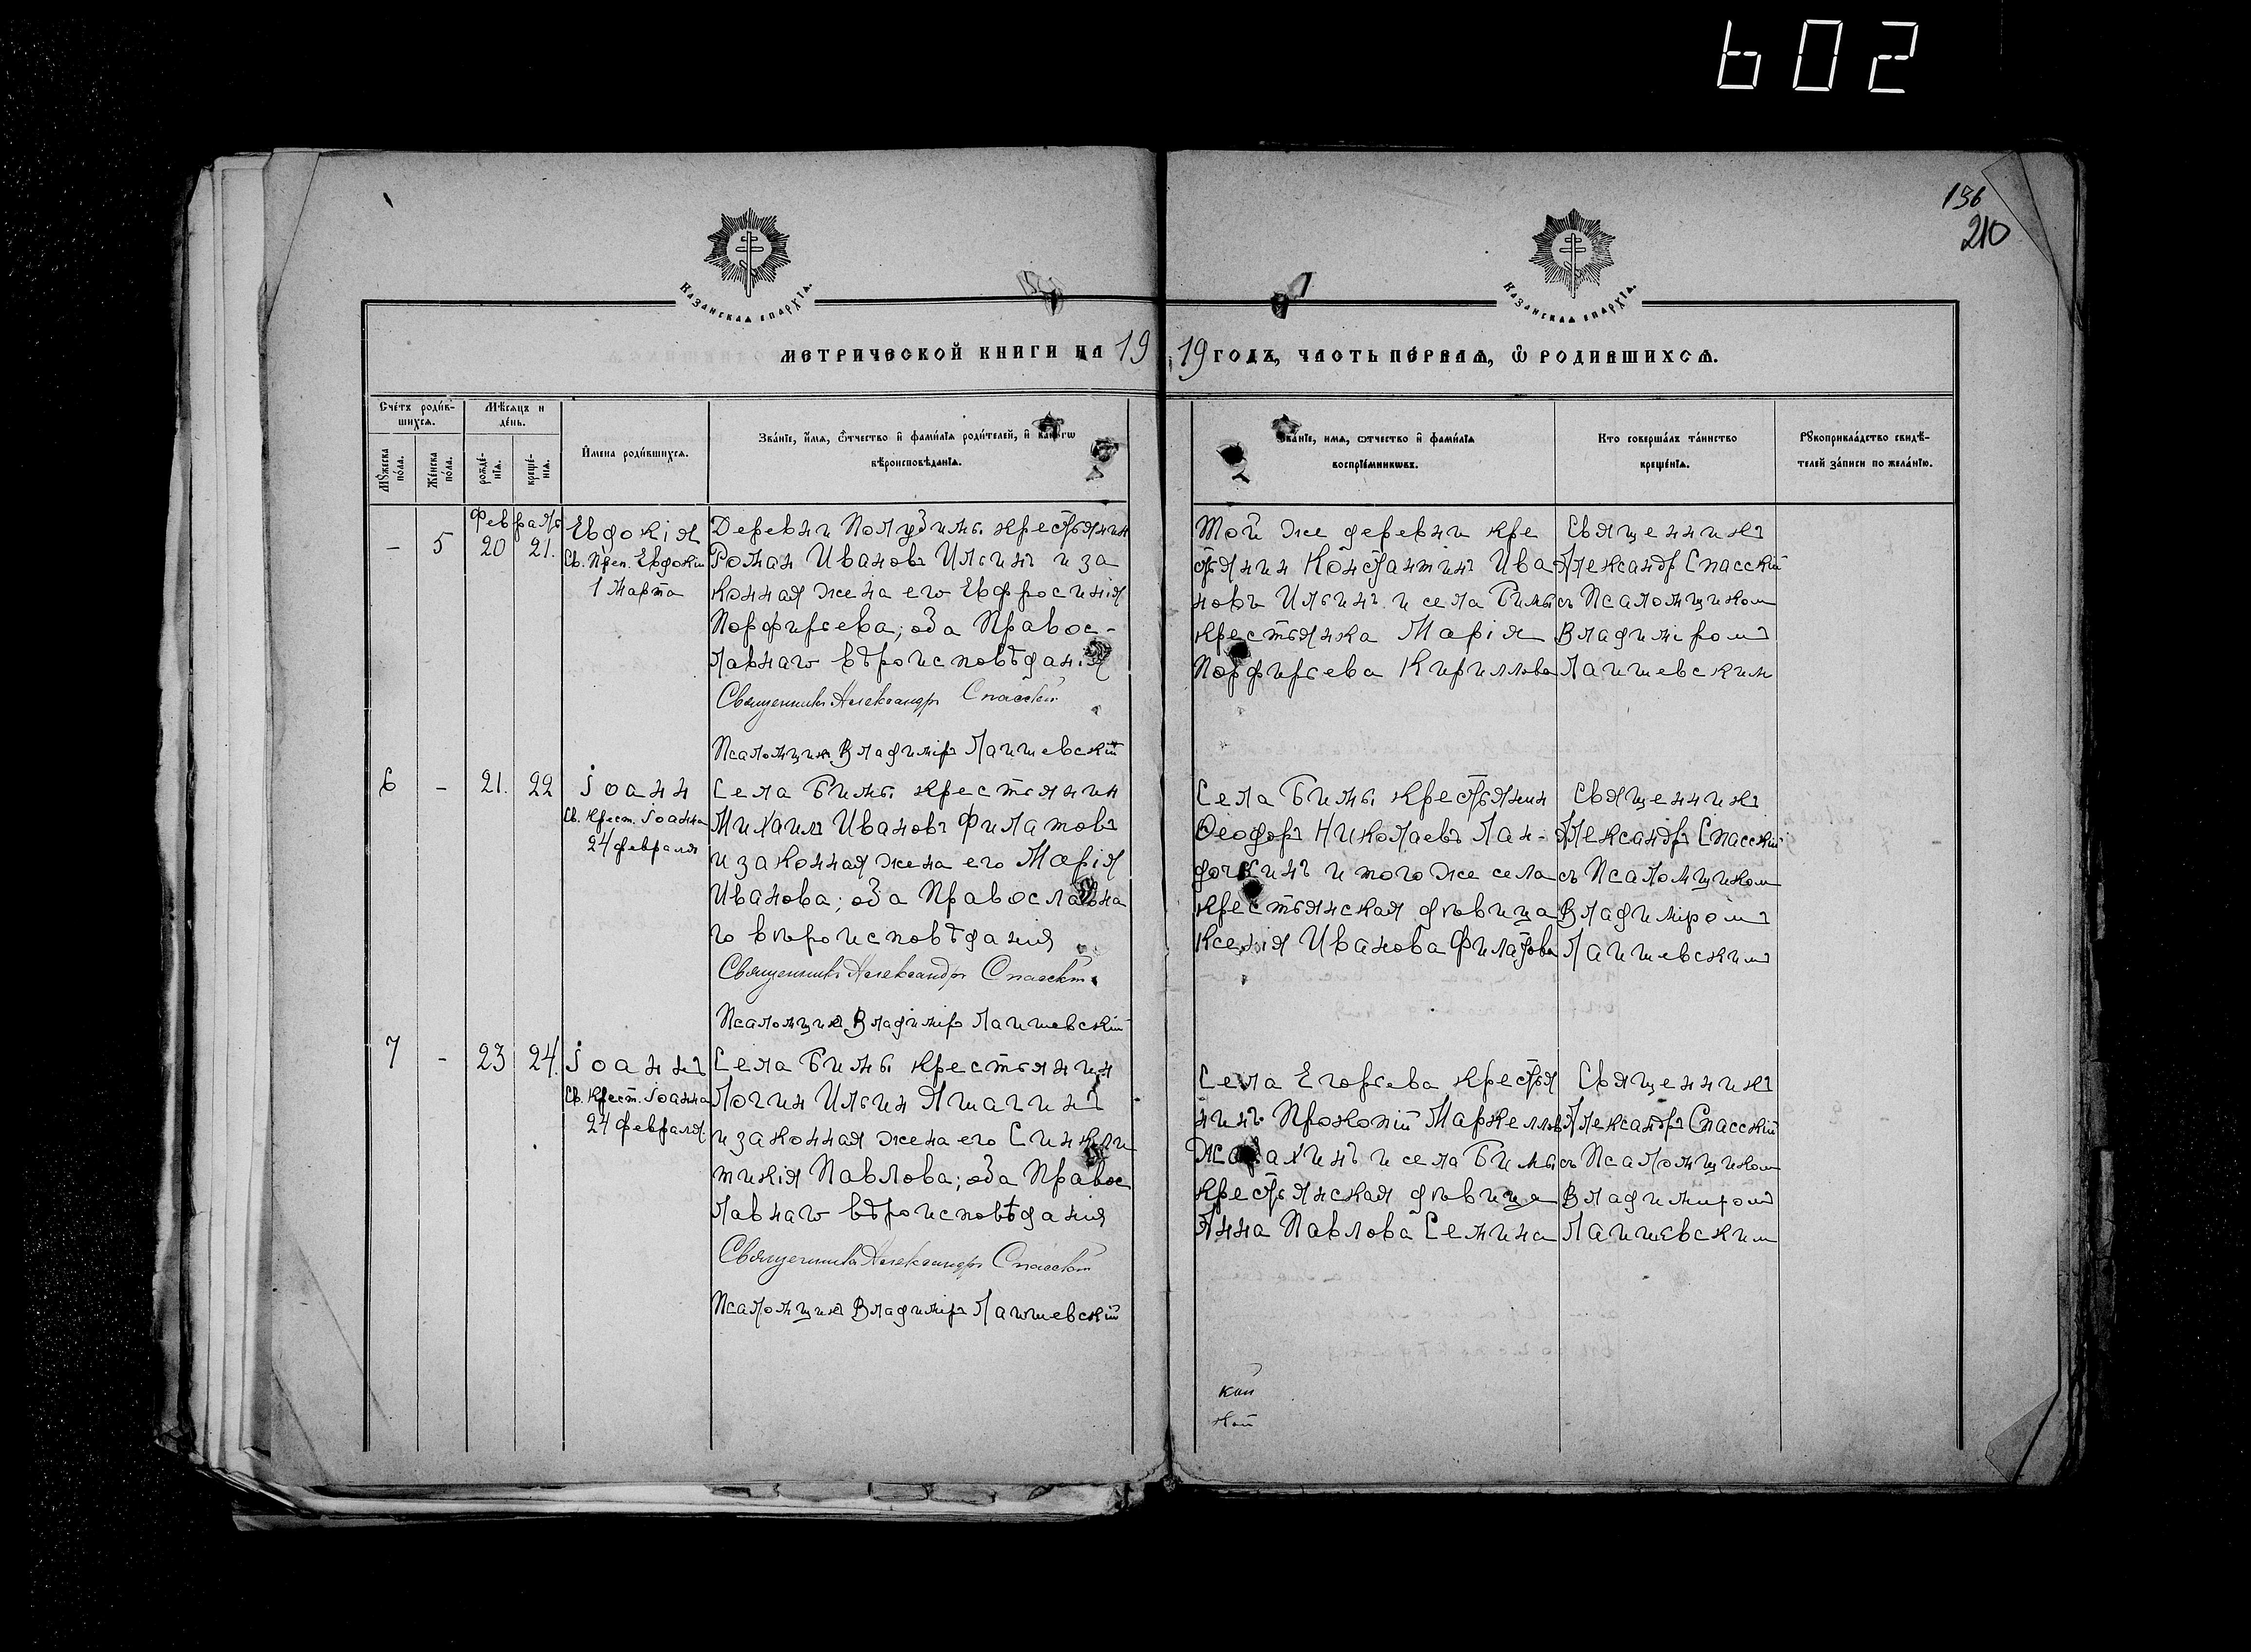 602
136
210
Казанская епархїя.
Казанская епархїя.
Метрической книги на 1919 годъ, часть первая, ѿ родившихся.
Счетъ родив-
шихся.
Мѣсяцъ и
день.
Мужеска
пола.
Женска
пола.
рожде-
нїя.
креще-
нїя.
Имена родившихся.
Званїе, имя, ѿтчество и фамилїя родителей, и какогѡ
вѣроисповѣданїя.
Званїе, имя, ѿтчество и фамилїя
воспрїемниковъ.
Кто совершалъ таинство
крещенїя.
Рукоприкладство свидѣ-
телей записи по желанїю.
Февраль
- 5 20 21.
Евдокія
Св. Преп. Евдокіи
1 Марта
Деревни Полудимы крестьянин
Роман Ивановъ Ильинъ и за
конная жена его Евфросинія
Порфирьева; оба Правос-
лавнаго вѣроисповѣданія
Священникъ Александръ Спасскій
Псаломщикъ Владиміръ Лаишевскій
Той же деревни кре
стьянин Константинъ Ива
новъ Ильинъ и села Бимы
крестьянка Марія
Порфирьева Кириллова
Священникъ
Александръ Спасскій
съ Псаломщиком
Владиміромъ
Лаишевским
6 - 21. 22
Іоанн
Св. Крест. Іоанна
24 февраля
Села Бимы крестьянин
Михаилъ Ивановъ Филатовъ
и законная жена его Марія
Иванова; оба Православна
го вѣроисповѣданія
Священникъ Александръ Спасскій
Псаломщикъ Владиміръ Лаишевскій
Села Бимы Крестьянин
Ѳеодоръ Николаевъ Лан-
дочкинъ и того же села
крестьянская дѣвица
Ксенія Иванова Филатова
Священникъ
Александръ Спасскій
съ Псаломщиком
Владиміромъ
Лаишевскимъ
7 - 23 24.
Іоаннъ
Св. Крест. Іоанна
24 февраля.
Села Бимы крестьянин
Логин Ильин Ашагинъ
и законная жена его Синкли
тикія Павлова; оба Правос
лавнаго вѣроисповѣданія
Священникъ Александръ Спасскій
Псаломщикъ Владиміръ Лаишевскій
Села Егорьева крестья
нинъ Прокопій Маркеллов
и села Бимы
крестьянская дѣвица
Анна Павлова Семина
Священникъ
Александръ Спасскій
съ Псаломщиком
Владимиромъ
Лаишевским